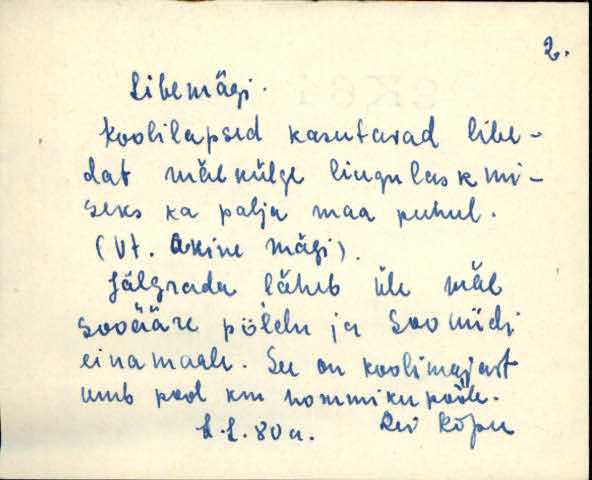 2.
Libemägi.
Koolilapsed kasutavad libe-
dat mäekülge liugulaskmi-
seks ka palja maa puhul.
(Vt. Akine mägi).
Jälgrada läheb üle mäe
Sooääre põldu ja Sooniidi
einamaale. See on koolimajast
umb pool km hommiku poole.
L.L. 80 a. Kõpu